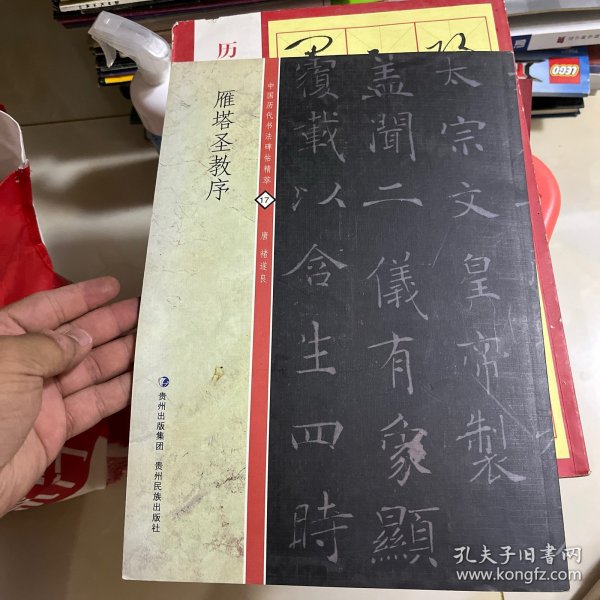 雁塔圣教序
中国历代书法碑帖精萃
17
唐 褚遂良
贵州出版集团
贵州民族出版社
太宗文皇帝製
盖聞二儀有象顯
覆載以含生四時
历
LEGO
孔夫子旧书网
www.kongfz.com